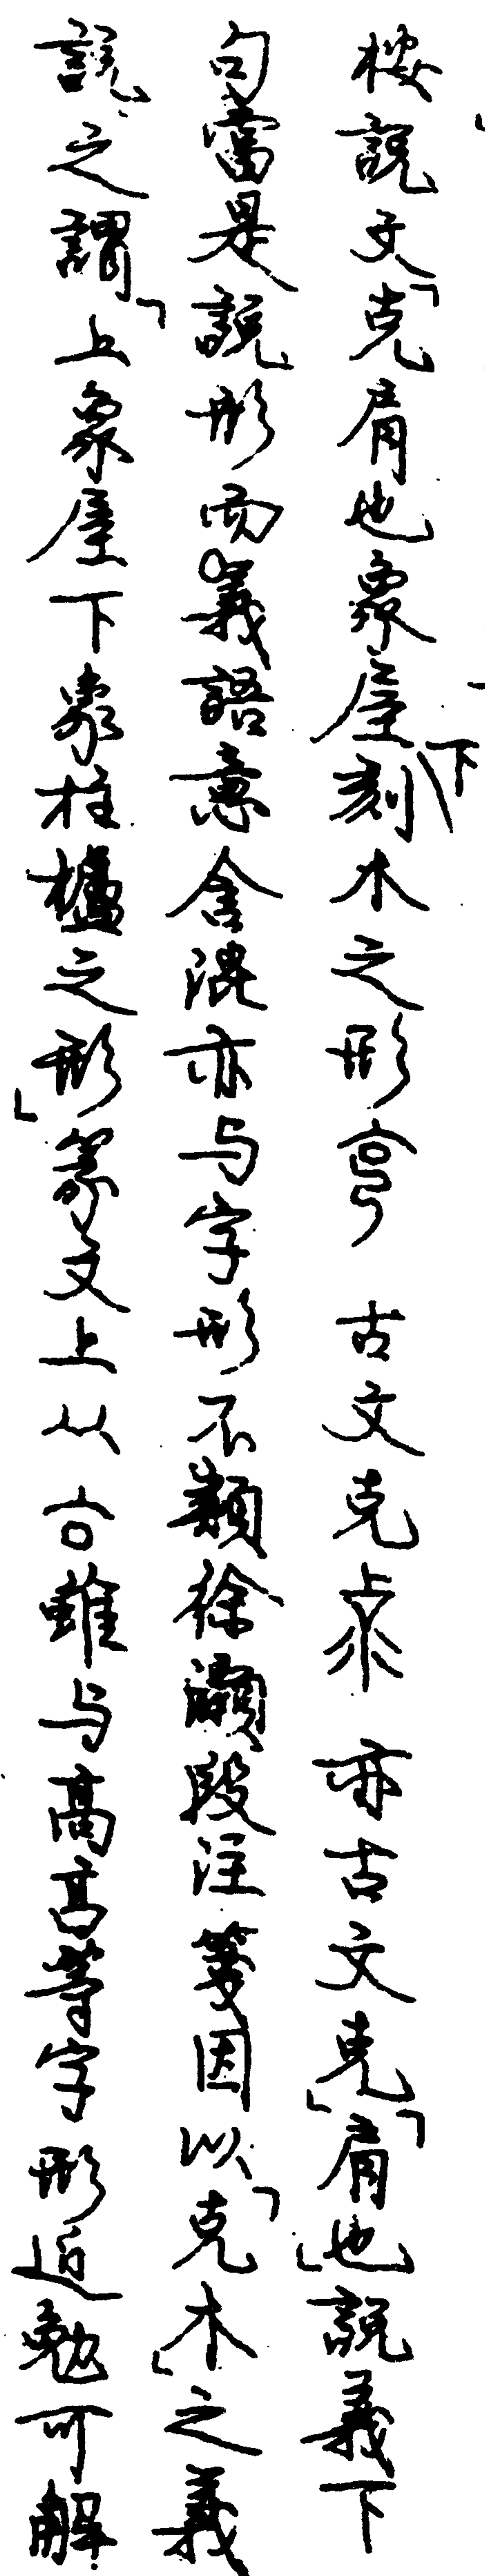 桉說文「克肩也象屋下刻木之形 古文克 亦古文克」「肩也」說義下
句當是說形而義語意含混亦与字形不類徐灝段注箋因以「克木」之義
說之謂「上象屋下象柱櫨之形」篆文上从 雖与高 等字形近勉可解